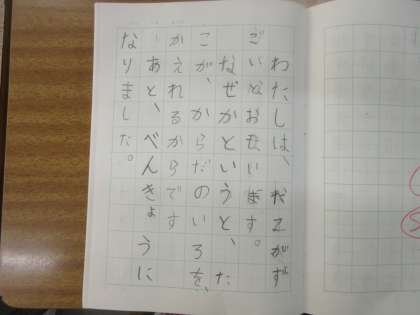 わたしは、たこがず
ごいとおもいます。
なぜかというと、た
こが、からだのいろを、
かえれるからです
あと、べんきょうに
なりました。